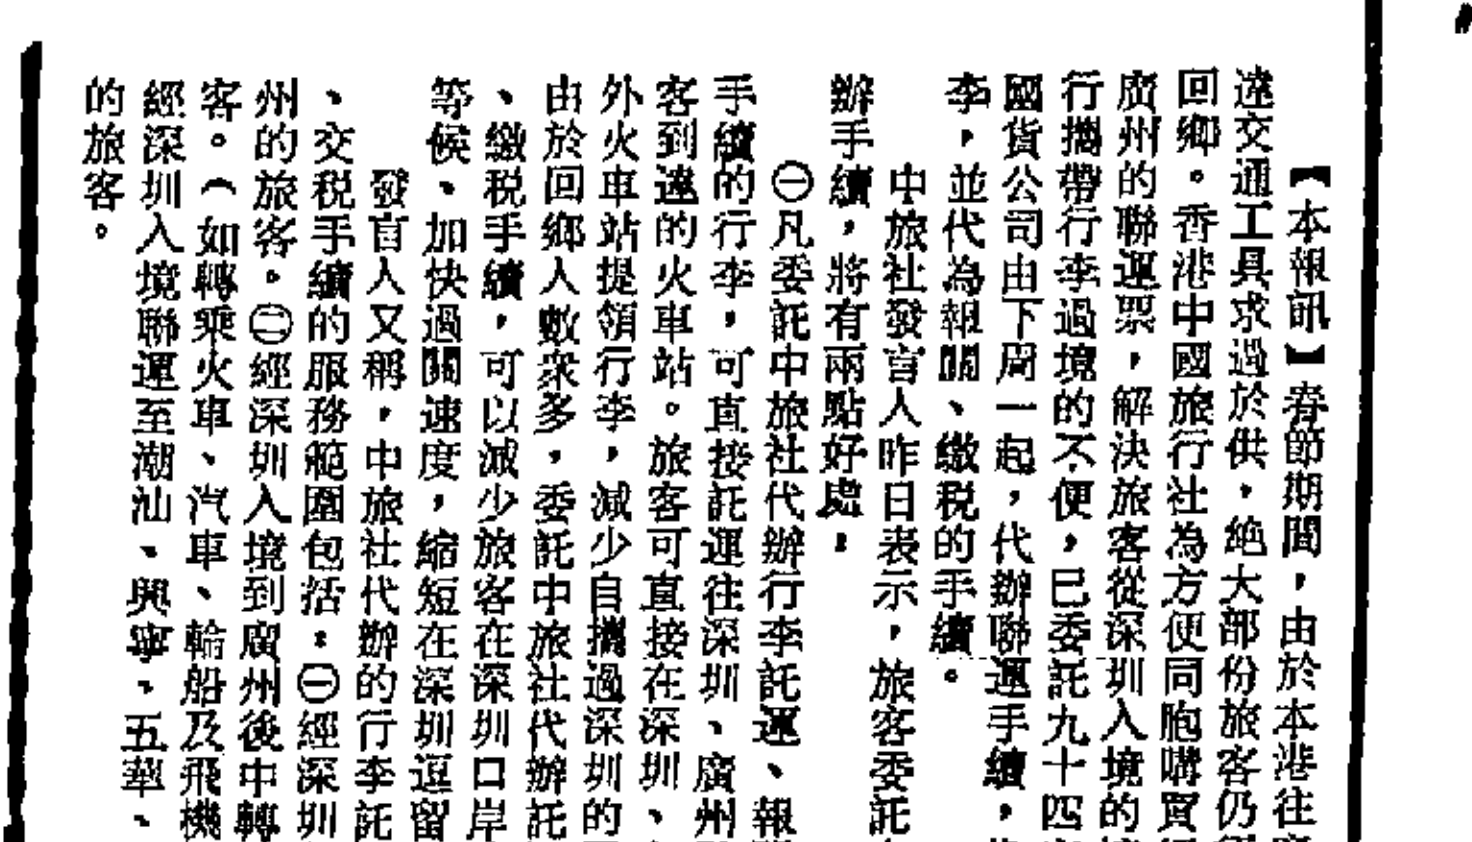 【本報訊】春節期間，由於本港往
遠交通工具求過於供，絶大部份旅客仍
回鄉。香港中國旅行社為方便同胞購買
廣州的聯運票，解決旅客從深圳入境的
行攜帶行李過境的不便，已委託九十四
國貨公司由下周一起，代辦聯運手續，
李，並代為報關、繳税的手續。
中旅社發言人昨日表示，旅客委託
辦手續，將有兩點好處：
㊀凡委託中旅社代辦行李託運、報
手續的行李，可直接託運往深圳、廣州
客到達的火車站。旅客可直接在深圳、
外火車站提領行李，減少自攜過深圳的
由於回鄉人數衆多，委託中旅社代辦託
、繳税手續，可以減少旅客在深圳口岸
等候、加快過關速度，縮短在深圳逗留
發言人又稱，中旅社代辦的行李託
、交税手續的服務範圍包括：㊀經深圳
州的旅客。㊁經深圳入境到廣州後中轉
客。（如轉乘火車、汽車、輪船及飛機
經深圳入境聯運至潮汕、興寧、五華、
的旅客。